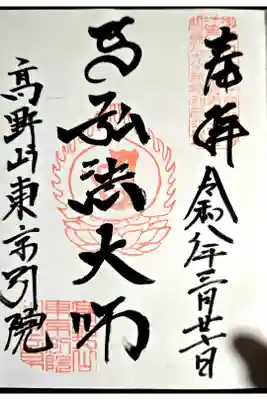 奉拝
令和八年三月廿六日
弘法大師
高野山東京別院